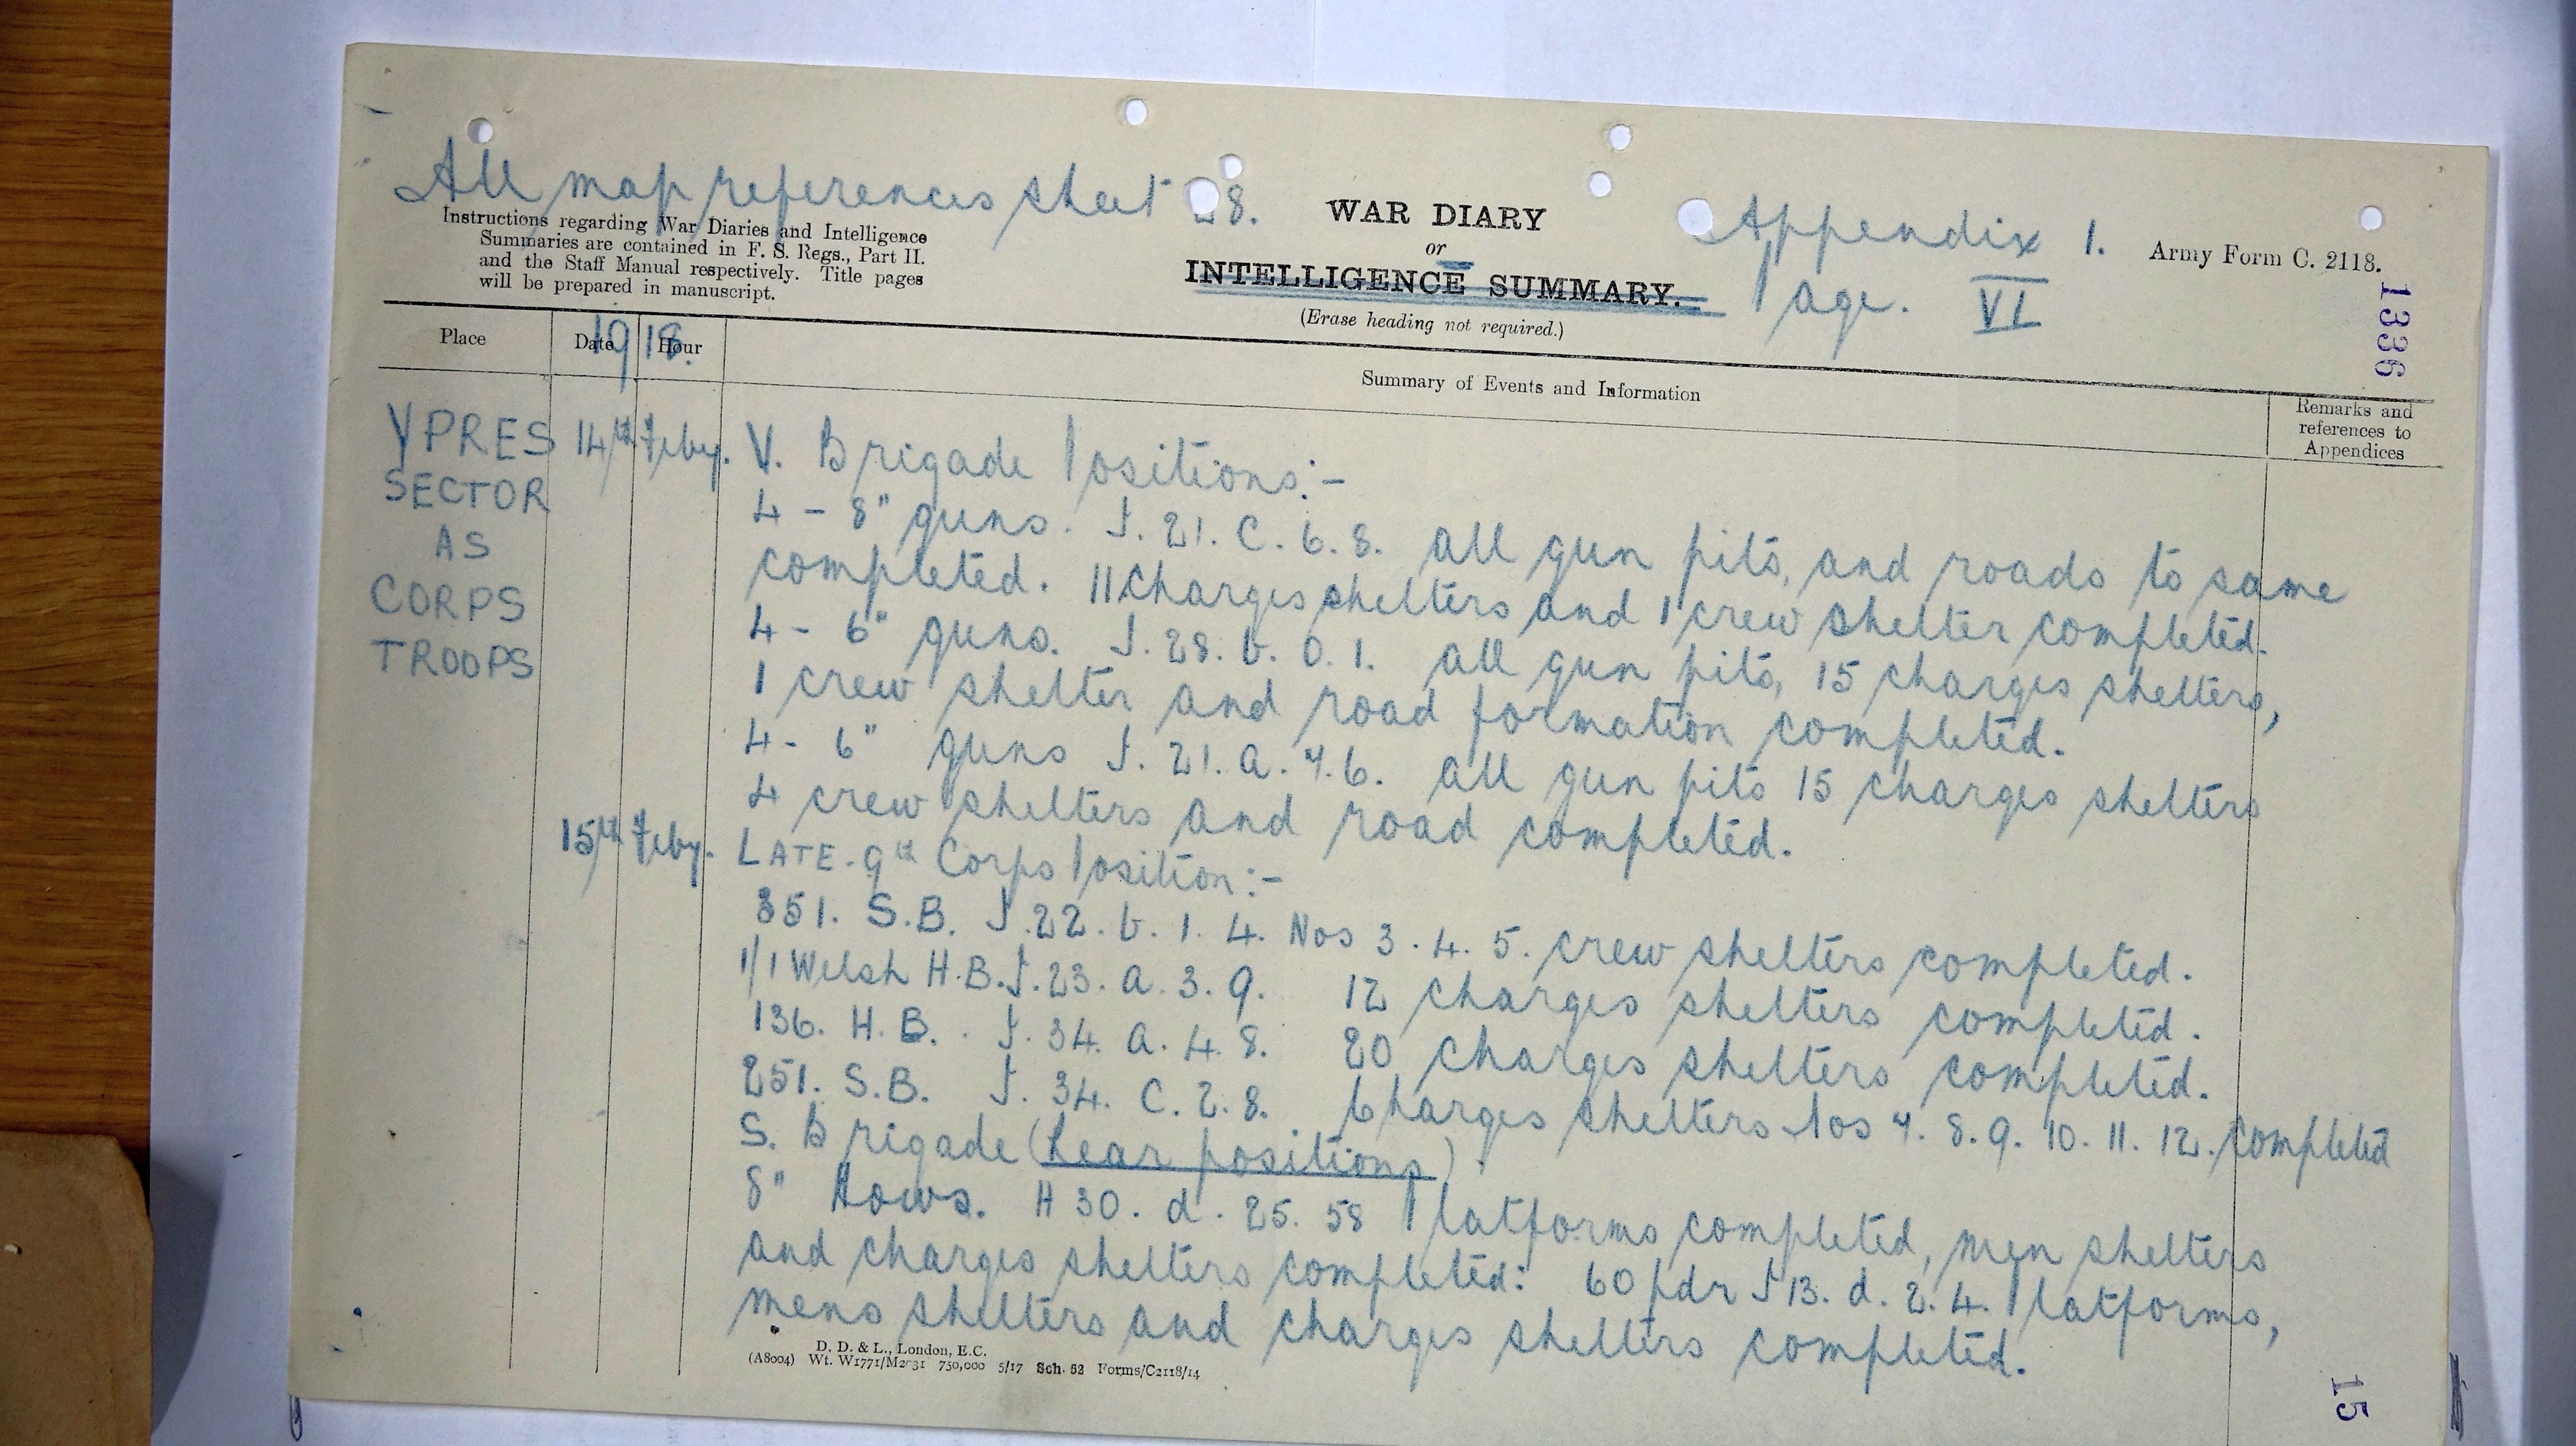 All map references sheet 28.
Instructions regarding War Diaries and Intelligence
Summaries are contained in F. S. Regs., Part II.
and the Staff Manual respectively. Title pages
will be prepared in manuscript.
WAR DIARY
or
INTELLIGENCE SUMMARY.
(Erase heading not required.)
Appendix 1.
Page. VI
Army Form C. 2118.
1336
Place
Date
Hour
1918.
Summary of Events and Information
Remarks and
references to
Appendices
YPRES
SECTOR
AS
CORPS
TROOPS
14th Feby. V. Brigade Positions:-
4 - 8" guns. J. 21. C. 6. 8. all gun pits, and roads to same
completed. 11 Charges shelters and 1 crew shelter completed.
4 - 6" guns. J. 28. b. 0. 1. all gun pits, 15 charges shelters,
1 crew shelter and road formation completed.
4 - 6" guns J. 21. a. 7. 6. all gun pits 15 charges shelters
4 crew shelters and road completed.
15th Feby. LATE. 9th Corps Position:-
351. S.B. J. 22. b. 1. 4. Nos 3. 4. 5. crew shelters completed.
1/1 Welsh H.B. J. 23. a. 3. 9. 12 charges shelters completed.
136. H.B. J. 34. a. 4. 8. 20 charges shelters completed.
251. S.B. J. 34. C. 2. 8. Charges shelters Nos 7. 8. 9. 10. 11. 12. completed
S. Brigade (Rear positions)
8" Hows. H 30. d. 25. 58 Platforms completed, men shelters
and charges shelters completed: 60 pdr J 13. d. 2. 4. Platforms,
mens shelters and charges shelters completed.
D. D. & L., London, E.C.
(A8004) Wt. W1771/M2031 750,000 5/17 Sch. 52 Forms/C2118/14
15